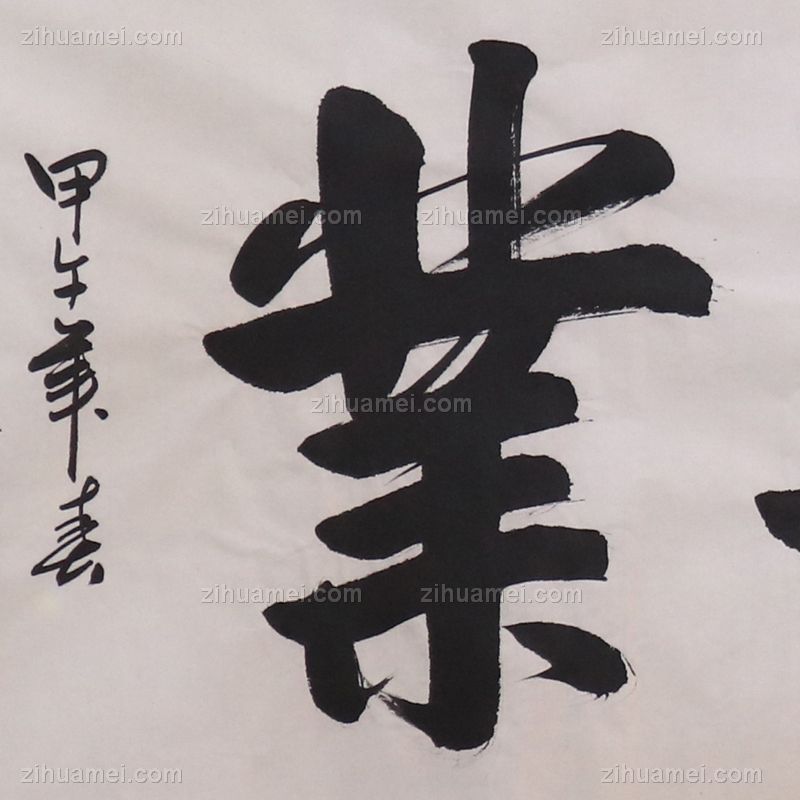 業
甲午年春
zihuamei.com zihuamei.com
zihuamei.com zihuamei.com
zihuamei.com
zihuamei.com zihuamei.com
zihuamei.com zihuamei.com